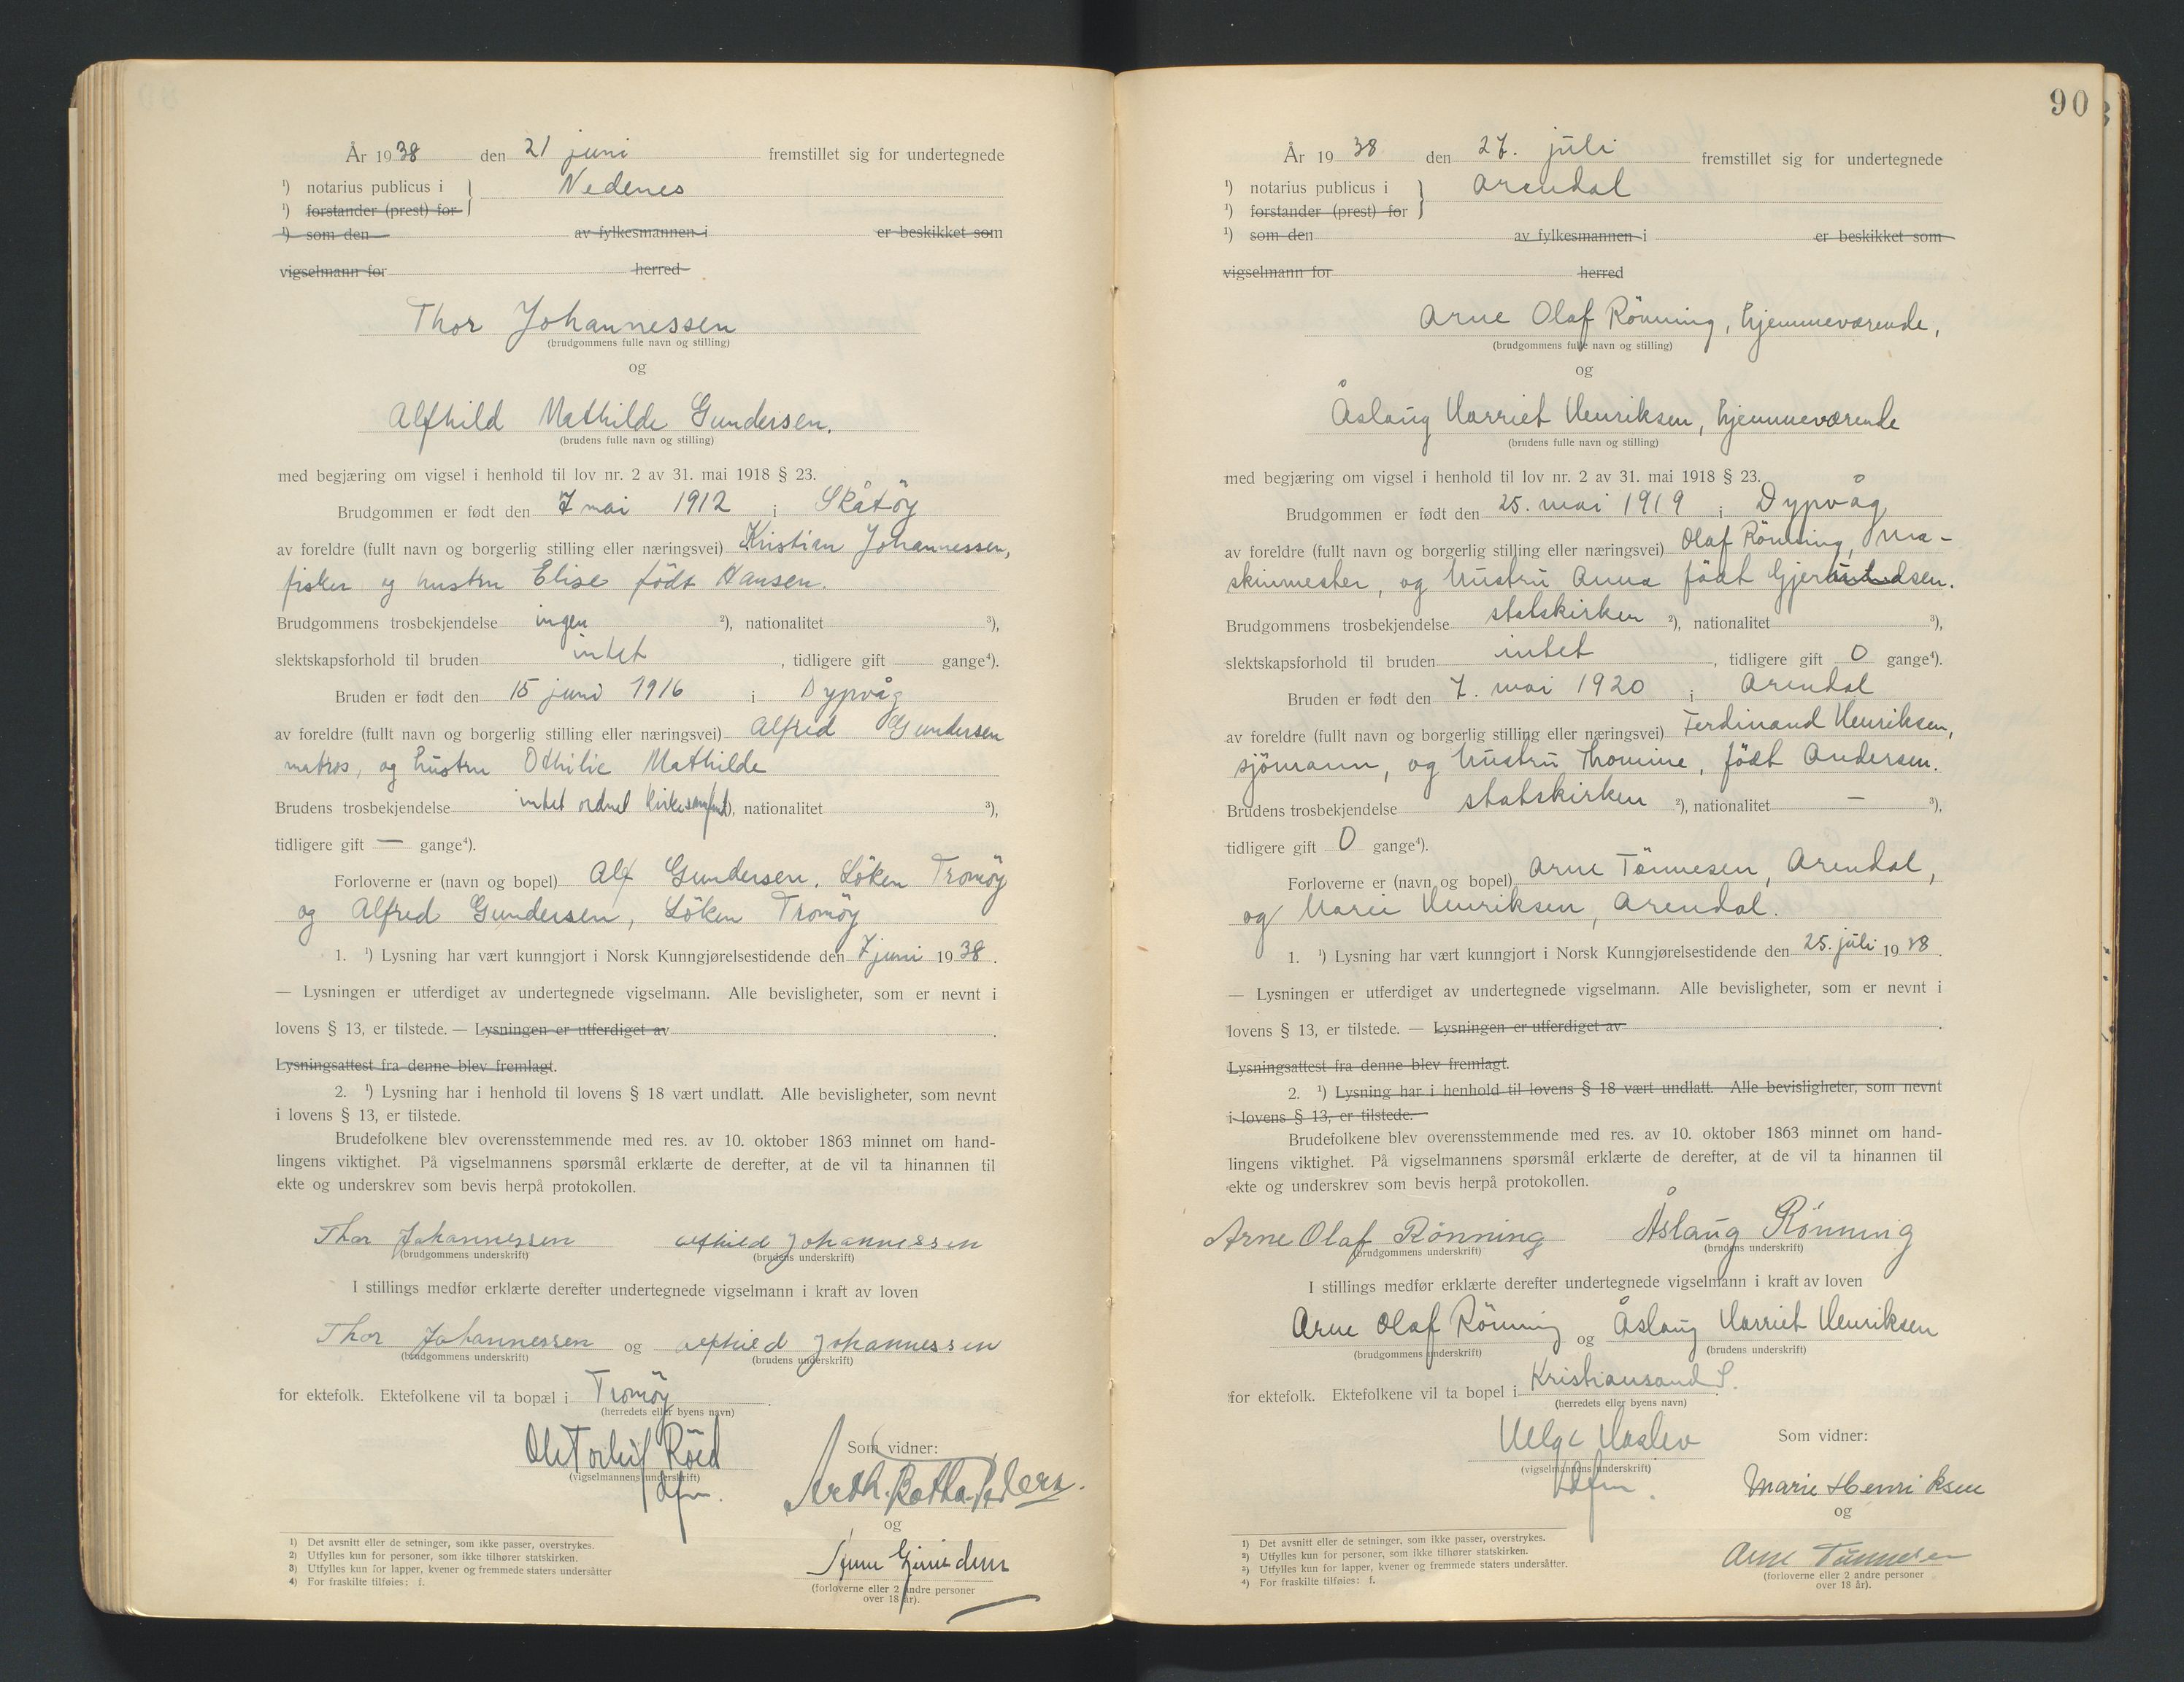 År 1938 den 21 juni fremstillet sig for undertegnede
¹) notarius publicus i } Nedenes
¹) forstander (prest) for
¹) som den av fylkesmannen i er beskikket som
vigselmann for herred
Thor Johannessen
(brudgommens fulle navn og stilling)
og
Alfhild Mathilde Gundersen.
(brudens fulle navn og stilling)
med begjæring om vigsel i henhold til lov nr. 2 av 31. mai 1918 § 23.
Brudgommen er født den 7 mai 1912 i Skåtöy
av foreldre (fullt navn og borgerlig stilling eller næringsvei) Kristian Johannessen,
fisker og hustru Elise födt Hansen.
Brudgommens trosbekjendelse ingen ²), nationalitet ³),
slektskapsforhold til bruden intet, tidligere gift — gange⁴).
Bruden er født den 15 juni 1916 i Dypvåg
av foreldre (fullt navn og borgerlig stilling eller næringsvei) Alfred Gundersen
matros, og hustru Othilie Mathilde
Brudens trosbekjendelse intet ordnet kirkesamfund ²), nationalitet ³),
tidligere gift — gange⁴).
Forloverne er (navn og bopel) Alf Gundersen, Löken Tromöy
og Alfred Gundersen, Löken Tromöy
1. ¹) Lysning har vært kunngjort i Norsk Kunngjørelsestidende den 7 juni 1938.
— Lysningen er utferdiget av undertegnede vigselmann. Alle bevisligheter, som er nevnt i
lovens § 13, er tilstede. — Lysningen er utferdiget av .
Lysningsattest fra denne blev fremlagt.
2. ¹) Lysning har i henhold til lovens § 18 vært undlatt. Alle bevisligheter, som nevnt
i lovens § 13, er tilstede.
Brudefolkene blev overensstemmende med res. av 10. oktober 1863 minnet om hand-
lingens viktighet. På vigselmannens spørsmål erklærte de derefter, at de vil ta hinannen til
ekte og underskrev som bevis herpå protokollen.
Thor Johannessen Alfhild Johannessen
(brudgommens underskrift) (brudens underskrift)
I stillings medfør erklærte derefter undertegnede vigselmann i kraft av loven
Thor Johannessen og Alfhild Johannessen
(brudgommens underskrift) (brudens underskrift)
for ektefolk. Ektefolkene vil ta bopæl i Tromöy.
(herredets eller byens navn)
Ole Torleif Röed Som vidner:
(vigselmannens underskrift)
dfm.
og
(forloverne eller 2 andre personer
over 18 år).
1) Det avsnitt eller de setninger, som ikke passer, overstrykes.
2) Utfylles kun for personer, som ikke tilhører statskirken.
3) Utfylles kun for lapper, kvener og fremmede staters undersåtter
4) For fraskilte tilføies: f.
90
År 1938 den 27. juli fremstillet sig for undertegnede
¹) notarius publicus i } Arendal
¹) forstander (prest) for
¹) som den av fylkesmannen i er beskikket som
vigselmann for herred
Arne Olaf Rönning, hjemmeværende,
(brudgommens fulle navn og stilling)
og
Åslaug Harriet Henriksen, hjemmeværende
(brudens fulle navn og stilling)
med begjæring om vigsel i henhold til lov nr. 2 av 31. mai 1918 § 23.
Brudgommen er født den 25. mai 1919 i Dypvåg
av foreldre (fullt navn og borgerlig stilling eller næringsvei) Olaf Rönning, ma-
skinmester, og hustru Anna födt
Brudgommens trosbekjendelse statskirken ²), nationalitet ³),
slektskapsforhold til bruden intet, tidligere gift 0 gange⁴).
Bruden er født den 7. mai 1920 i Arendal
av foreldre (fullt navn og borgerlig stilling eller næringsvei) Ferdinand Henriksen,
sjömann, og hustru Thomine, födt Andersen.
Brudens trosbekjendelse statskirken ²), nationalitet — ³),
tidligere gift 0 gange⁴).
Forloverne er (navn og bopel) Arne Tönnesen, Arendal,
og Marie Henriksen, Arendal.
1. ¹) Lysning har vært kunngjort i Norsk Kunngjørelsestidende den 25. juli 1938.
— Lysningen er utferdiget av undertegnede vigselmann. Alle bevisligheter, som er nevnt i
lovens § 13, er tilstede. — Lysningen er utferdiget av .
Lysningsattest fra denne blev fremlagt.
2. ¹) Lysning har i henhold til lovens § 18 vært undlatt. Alle bevisligheter, som nevnt
i lovens § 13, er tilstede.
Brudefolkene blev overensstemmende med res. av 10. oktober 1863 minnet om hand-
lingens viktighet. På vigselmannens spørsmål erklærte de derefter, at de vil ta hinannen til
ekte og underskrev som bevis herpå protokollen.
Arne Olaf Rönning Åslaug Rönning
(brudgommens underskrift) (brudens underskrift)
I stillings medfør erklærte derefter undertegnede vigselmann i kraft av loven
Arne Olaf Rönning og Åslaug Harriet Henriksen
(brudgommens underskrift) (brudens underskrift)
for ektefolk. Ektefolkene vil ta bopel i Kristiansand S.
(herredets eller byens navn)
Helge Haslev Som vidner:
(vigselmannens underskrift)
dfm.
Marie Henriksen
og
Arne Tönnesen
(forloverne eller 2 andre personer
over 18 år).
1) Det avsnitt eller de setninger, som ikke passer, overstrykes.
2) Utfylles kun for personer, som ikke tilhører statskirken.
3) Utfylles kun for lapper, kvener og fremmede staters undersåtter.
4) For fraskilte tilføies: f.